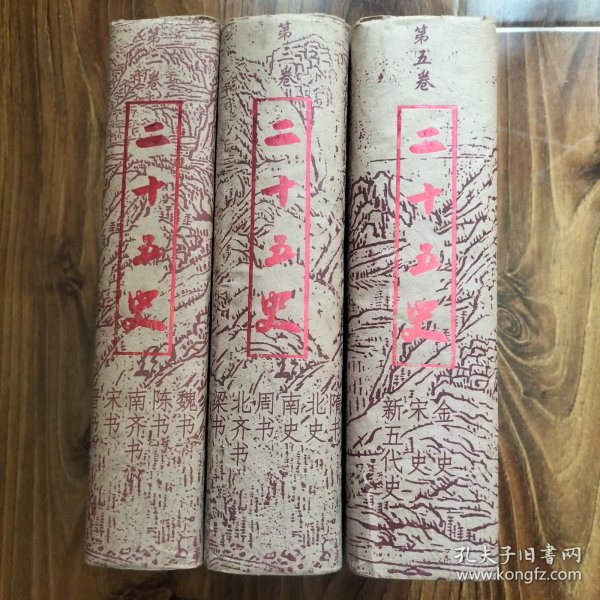 第二卷
二十五史
宋书
南齐书
陈书
魏书
第三卷
二十五史
梁书
北齐书
周书
南史
北史
隋书
第五卷
二十五史
新五代史
宋史
金史
孔夫子旧书网
www.kongfz.com